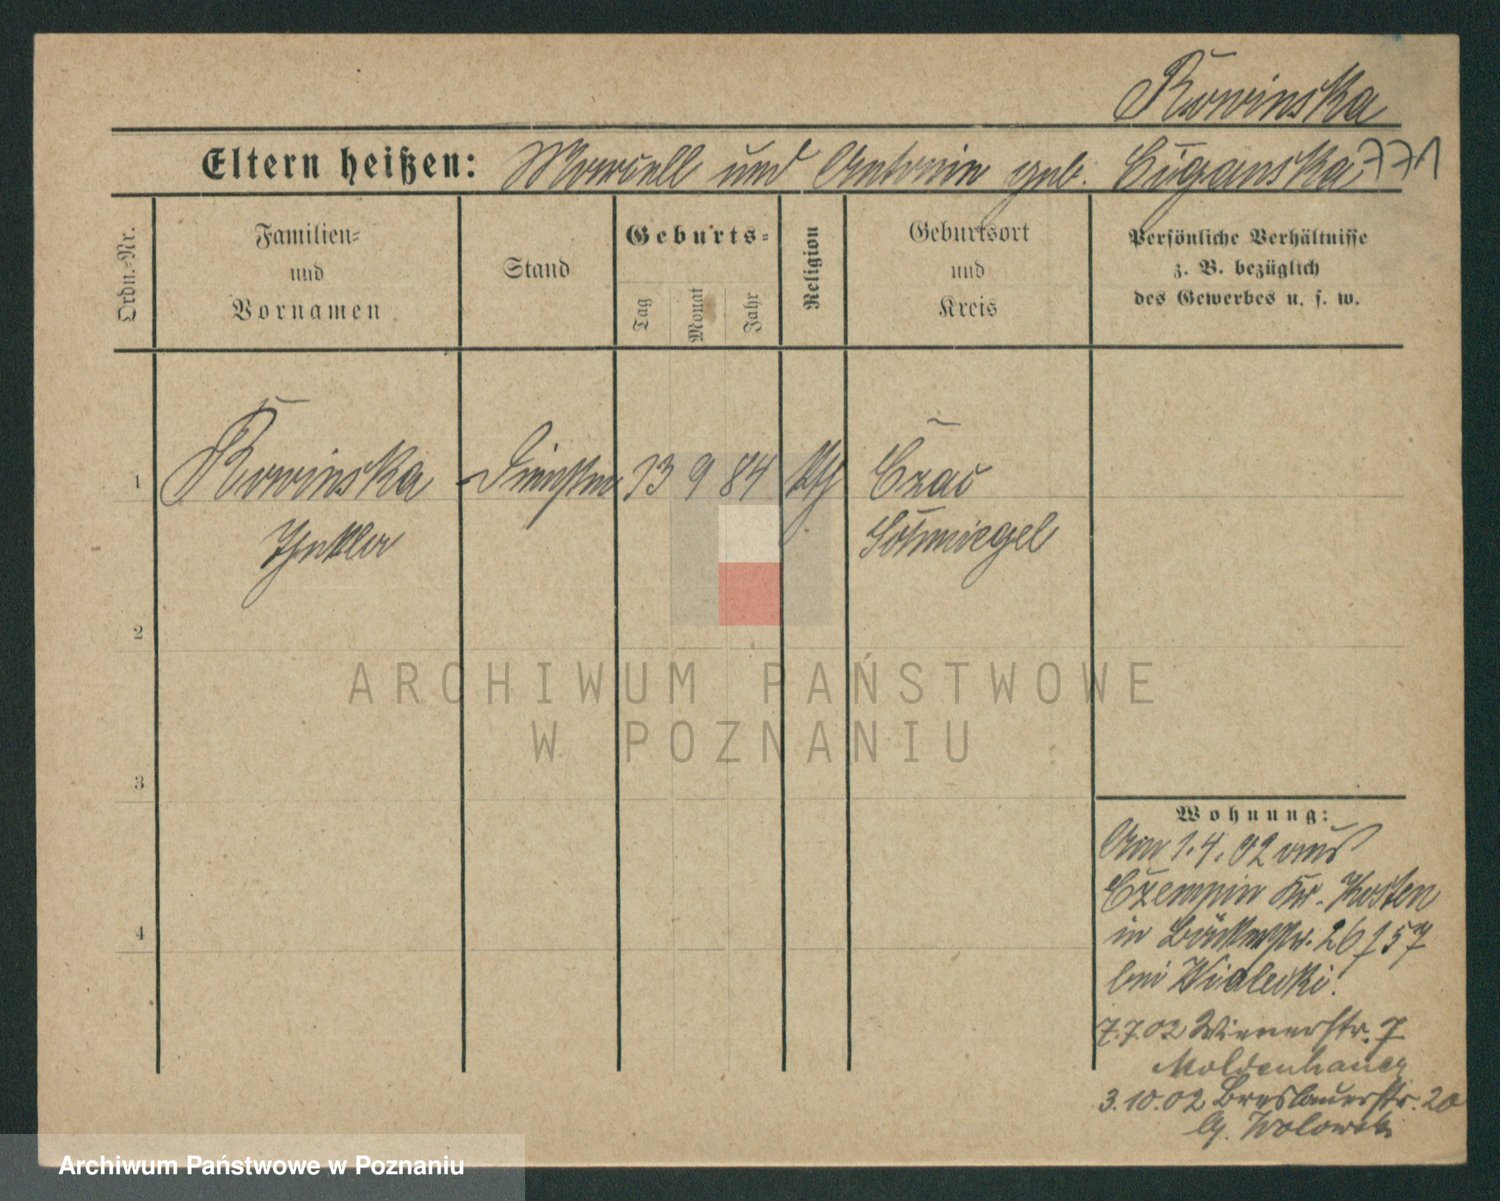 Rowinska
Eltern heißen: Marcell und Antonie geb. Cuganska 771
Ordn.-Nr.
Familien-
und
Vornamen
Stand
Geburts-
Tag
Monat
Jahr
Religion
Geburtsort
und
Kreis
Persönliche Verhältnisse
z. B. bezüglich
des Gewerbes u. s. w.
1 Rowinska 13 9 84 kth Czac
Thekla Schmiegel
2
3
4
Wohnung:
Am 1.4.02 aus
Czempin Kr. Kosten
in Bäckerstr. 26
bei Wialecki.
7.7.02 Wienerstr. 7
Moldenhauer
3.10.02 Breslauerstr. 20
Wolowski
ARCHIWUM PAŃSTWOWE
W POZNANIU
Archiwum Państwowe w Poznaniu